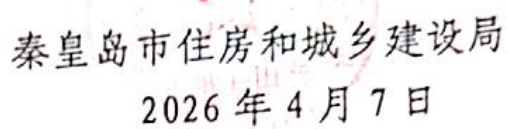 秦皇岛市住房和城乡建设局
2026年4月7日